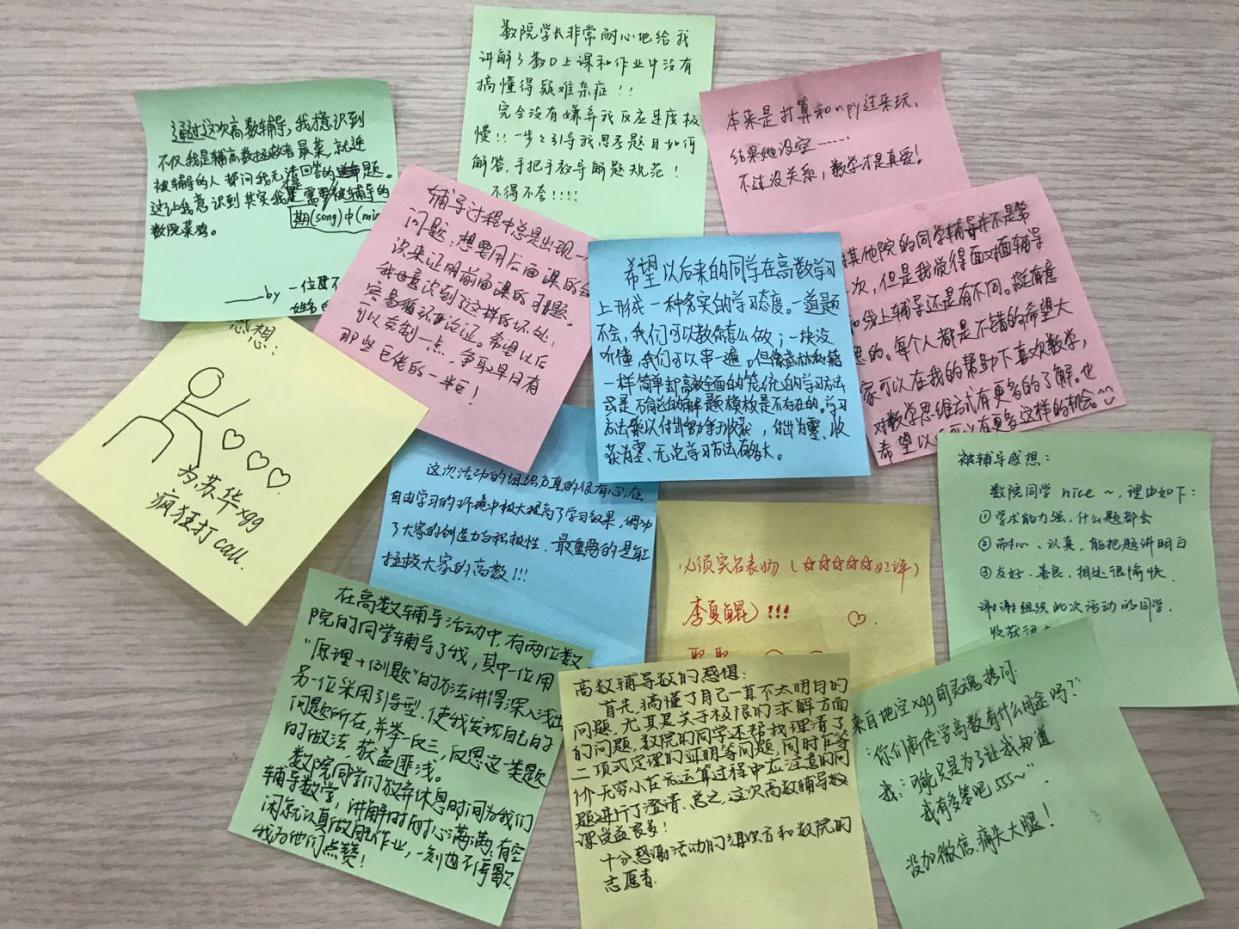 数院学长非常耐心地给我
讲解了数D上课和作业中没有
搞懂得疑难杂症!!
完全没有嫌弃我反应速度极
慢!!一步步引导我思考题目如何
解答,手把手教导解题规范!
不得不夸!!!!
通过这次高数辅导,我意识到
不仅我是辅高数拯救者最菜,就连
被辅导的人都问我无法回答的难题。
这让我意识到其实我是需要被辅导的
数院菜鸡。
期(song)中(min
——by 一位
本来是打算和npy过来玩,
结果她没空……
不过没关系,数学才是真爱!
辅导过程中总是出现一
问题:想要用后面课的
次来证明前面课的习题。
我也意识到了这样的坏处:
容易循环论证。希望以后
可以克制一点,争取早日有
那些巨佬的一半巨!
希望以后来的同学在高数学习
上形成一种务实的学习态度。一道题
不会,我们可以教你怎么做;一块没
听懂,我们可以串一遍。但像武林秘籍
一样简单却高效全面的笼统的学习方法
或是万能的解题模板是不存在的。学习
方法乘以付出等于收获,付出为零、收
获为零、无论学习方法有多大。
其他院的同学辅导并不是第
次,但是我觉得面对面辅导
和线上辅导还是有不同。挺有意
思的。每个人都是不错的希望大
家可以在我的帮助下喜欢数学,
对数学思维方式有更多的了解。也
希望以后可以有更多这样的机会。
感想:
为苏华xgg
疯狂打call.
这次活动的组织方真的很有心,在
自由学习的环境中极大提高了学习效果,调动
了大家的创造力与积极性.最重要的是能
拯救大家的高数!!!
必须实名表扬(☆☆☆☆☆好评)
李夏鲲)!!!
被辅导感想:
数院同学nice~,理由如下:
①学术能力强,什么题都会
②耐心、认真,能把题讲明白
③友好、善良,相处很愉快.
谢谢组织此次活动的同学.
收获很
在高数辅导活动中,有两位数
院的同学辅导了我,其中一位用
"原理+例题"的方法讲得深入浅出
另一位采用引导型,使我发现自己的
问题所在,并举一反三,反思这一类题
的做法 获益匪浅。
数院同学们放弃休息时间为我们
辅导数学,讲解时耐心满满,有空
闲就认真做自己作业,一刻也不停歇.
我为他们点赞!
高数辅导数的感想:
首先,搞懂了自己一直不太明白的
问题,尤其是关于极限的求解方面
的问题,数院的同学还帮我理清了
二项式定理的证明等问题,同时在等
价无穷小在运算过程中应注意的问
题进行了澄清,总之,这次高数辅导数
课收益很多!
十分感谢活动的组织方和数院的
志愿者.
来自地空xgg的灵魂拷问:
:"你们高佬学高数有什么用途吗?"
我:可能只是为了让我知道
我有多笨吧555~".
没加微信,痛失大腿!